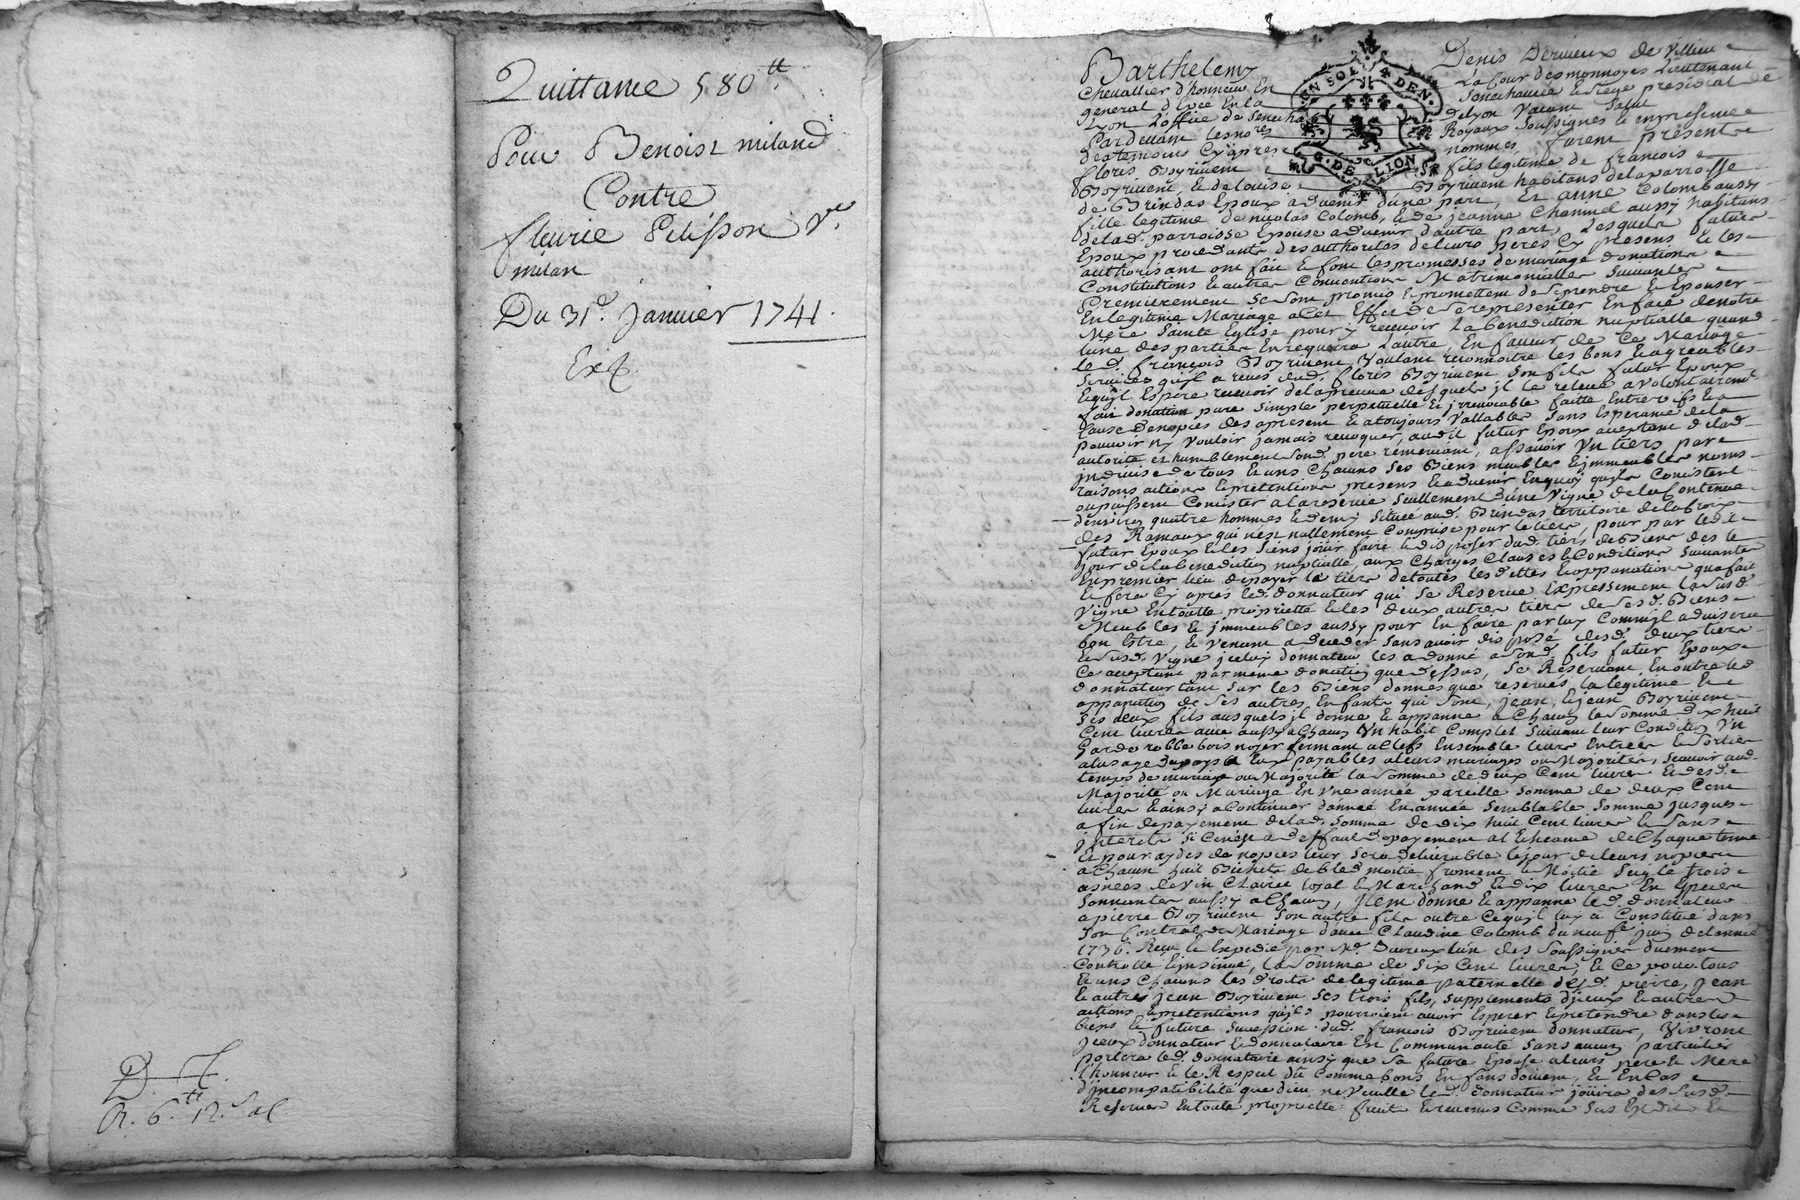 Quittance 580 tt
Pour Benoist miland
Contre
fleurie Pelisson Ve
milan
Du 31e. Janvier 1741.
Exp.
D. F.
R. 6 tt 12 s.
UN SOL 4 DEN.
G. DE LION
Barthelemy Denis Dervieux de Villieu
Chevallier d'honneur En La Cour des monnoyes Lieutenant
general d'Epée En la Senechaucée & siege presidial de
Lyon L'office de Senechal delyon Vacant Salut
Pardevant les nores Royaux soussignés & en presence
des temoins Cy apres nommés furent présents
floris Boyrivent fils legitime de francois
Boyrivent, & de Louise Boyrivent habitans de la parroisse
de Brindas Epoux advenir d'une part, Et anne Colomb aussy
fille legitime de nicolas Colomb, & de jeanne Chanuel aussy habitans
de lad. parroisse Epouse advenir d'autre part, Lesquels futurs
Epoux procedants des authorités de leurs peres Cy presens & les
authorisant ont fait & font les promesses de mariage donations
Constitutions & autres Conventions Matrimonielles suivantes
Premierement se sont promis & promettent de se prendre & Epouser
En legitime Mariage a Cet Effet de se representer En face de notre
Mere Sainte Eglise pour y recevoir La benediction nuptialle quand
lune des parties En requerra L'autre, En faveur de Ce Mariage
le d. françois Boyrivent Voulant reconnoitre les bons & agreables
services qu'jl a receus dud. floris Boyrivent son fils futur Epoux
& qu'jl Espere recevoir de la preuve desquels jl le releve a Volontairement
fait donation pure simple perpetuelle & jrrevocable faitte Entre vifs & a
Cause de nopces des apresent & a toujours Vallable sans Esperance de la
pouvoir ny vouloir jamais revoquer, aud. futur Epoux acceptant de lad.
autorité et humblement sond. pere remerciant, assavoir Un tiers par
jndivise de tous & uns Chacuns ses Biens meubles & jmmeubles noms
raisons actions & pretentions presens & advenir En quoy qu'ils Consistent
ou puissent Consister a la reserve seullement d'une Vigne de la Contenue
d'environ quatre hommes & demy située aud. Brindas territoire de la Croix
des Rameaux qui n'est nullement Comprise pour le tiers, pour par led.
futur Epoux & les siens jouir faire & disposer dud. tiers de Biens des le
jour de la benediction nuptialle, aux Charges Clauses & Conditions suivantes
En premier lieu de payer le tiers de toutes les dettes & appanations qu'a fait
& fera Cy apres led. donnateur qui se Reserve Expressement la susd.
Vigne En toutte proprieté & les deux autres tiers de sesd. Biens
Meubles & jmmeubles aussy pour En faire par luy Comm'jl advisera
bon Estre, & venant a deceder sans avoir disposé desd. deux tiers
& susd. Vigne jceluy donnateur les a donné a sond. fils futur Epoux
Ce acceptant par meme donation que dessus, Se Reservant En outre led.
donnateur tant sur les Biens donnés que reservés la legitime &
appanation de ses autres Enfants qui sont, jean, & jean Boyrivent
ses deux fils ausquels jl donne & appanne a Chacun la somme dix huit
Cent livres avec aussy a Chacun Un habit Complet suivant leur Condition Un
Garde robbe bois noyer fermant a Clefs Ensemble leurs Entrées & sorties
a l'usage du pays & Eux payables a leurs mariages ou Majorités, scavoir aud.
temps de mariage ou Majorité la somme de deux Cent livres & desd.
Majorité ou Mariage En une année pareille somme de deux Cent
livres & ainsy a Continuer d'année En année semblable somme jusques
a fin de payement de lad. somme de dix huit Cent livres & sans
jnterets si Ce n'est a deffaut de payement a l'Echeance de Chaque terme
& pour aydes de nopces leur sera delivrable le jour de leurs nopces
a Chacun huit Bichets de bled moitié froment & Moitié Seigle trois
asnées de vin Clairet loyal & Marchand & dix livres En especes
sonnantes aussy a Chacun, jtem donne & appanne led. donnateur
a pierre Boyrivent son autre fils outre Ce qu'jl luy a Constitué dans
son Contrat de Mariage d'avec Claudine Colomb du neufe juin de l'année
1736. Receu & Expedié par Me. Durieux l'un des soussignés duement
Controllé & jnsinué, la somme de six Cent livres, & Ce pour tous
& uns Chacuns les droits de legitime paternelle desd. pierre, jean
& autre jean Boyrivent ses trois fils, supplements d'jceux & autres
actions & pretentions qu'jls pourroient avoir Esperer & pretendre dans les
biens & future succession dud. françois Boyrivent donnateur, Vivront
jceux donnateur & donnataire En Communauté sans aucun particulier
portera led. donnataire ainsy que sa future Epouse a leurs pere & Mere
l'honneur & le Respect dû Comme bons Enfans doivent, & En Cas
d'jncompatibilité que dieu ne Veuille led. donnateur jouira des susd.
Reserves En toute proprieté fruit & revenus Comme sus Est dit &